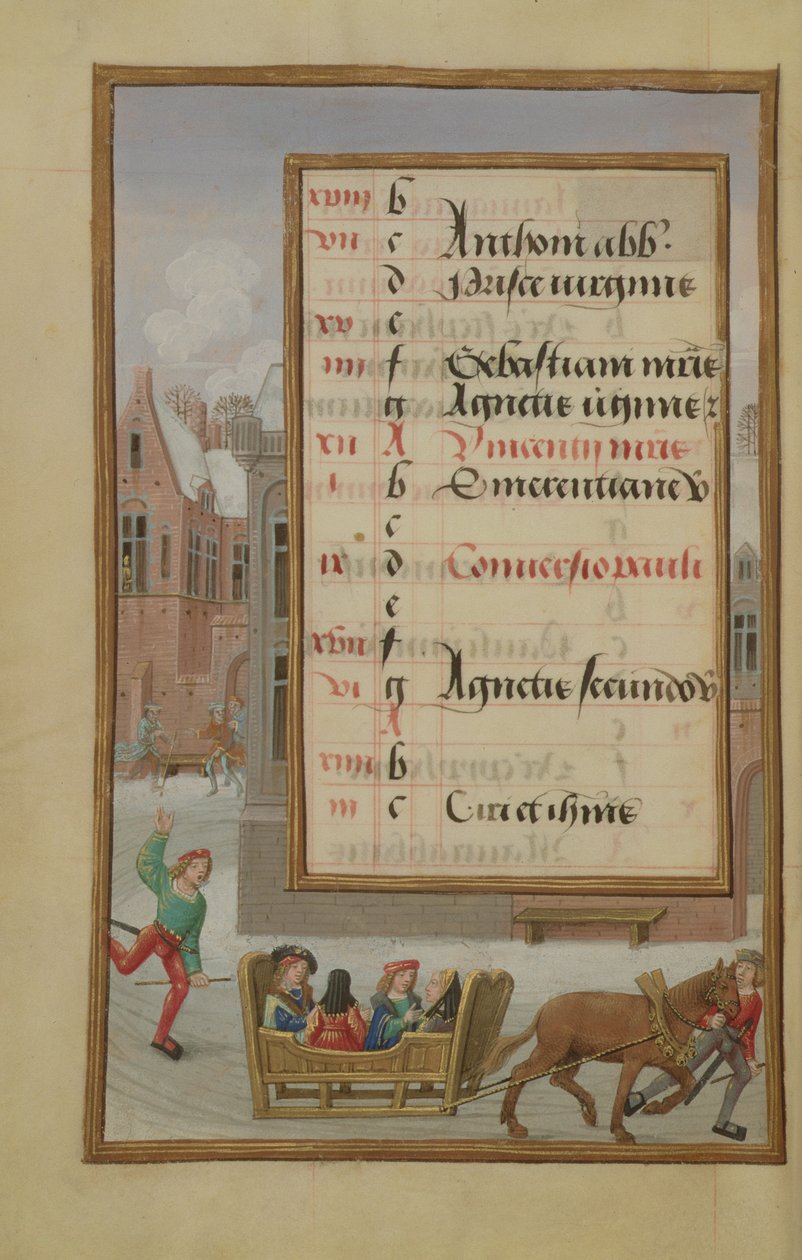 xviii b
vii c Anthoni abb'.
d Prisce virginis
xv e
iiii f Sebastiani mris
g Agnetis v̓ginis
xii A Vincentij mris
i b Emerentiane v
c
ix d Conversio pauli
e
xvii f
vi g Agnetis secundo v
A
xiiii b
iii c Ciri et ihōis